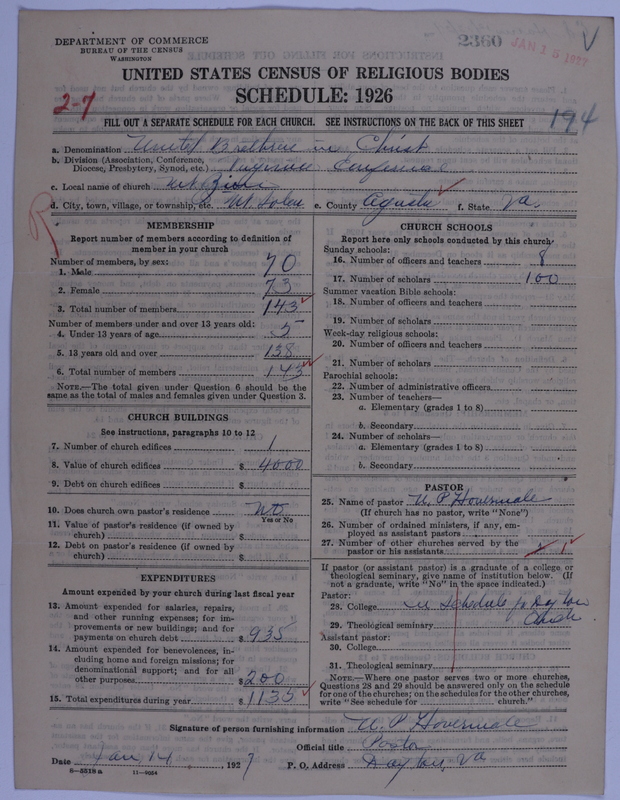 DEPARTMENT OF COMMERCE
BUREAU OF THE CENSUS
WASHINGTON
2360
JAN 15 1927
UNITED STATES CENSUS OF RELIGIOUS BODIES
SCHEDULE: 1926
2-7
194
FILL OUT A SEPARATE SCHEDULE FOR EACH CHURCH. SEE INSTRUCTIONS ON THE BACK OF THIS SHEET
a. Denomination United Brethren in Christ
b. Division (Association, Conference, Diocese, Presbytery, Synod, etc.) Virginia Conference
c. Local name of church Mt Zion
d. City, town, village, or township, etc. Mt Solon e. County Agusta f. State Va.
MEMBERSHIP
Report number of members according to definition of member in your church
Number of members, by sex:
1. Male 70
2. Female 73
3. Total number of members 143
Number of members under and over 13 years old:
4. Under 13 years of age 5
5. 13 years old and over 138
6. Total number of members 143
NOTE.—The total given under Question 6 should be the same as the total of males and females given under Question 3.
CHURCH BUILDINGS
See instructions, paragraphs 10 to 12
7. Number of church edifices 1
8. Value of church edifices $ 4000
9. Debt on church edifices $
10. Does church own pastor's residence No
Yes or No
11. Value of pastor's residence (if owned by church) $
12. Debt on pastor's residence (if owned by church) $
EXPENDITURES
Amount expended by your church during last fiscal year
13. Amount expended for salaries, repairs, and other running expenses; for improvements or new buildings; and for payments on church debt $ 935
14. Amount expended for benevolences, including home and foreign missions; for denominational support; and for all other purposes $ 200
15. Total expenditures during year $ 1135
CHURCH SCHOOLS
Report here only schools conducted by this church
Sunday schools:
16. Number of officers and teachers 8
17. Number of scholars 100
Summer vacation Bible schools:
18. Number of officers and teachers
19. Number of scholars
Week-day religious schools:
20. Number of officers and teachers
21. Number of scholars
Parochial schools:
22. Number of administrative officers
23. Number of teachers—
a. Elementary (grades 1 to 8)
b. Secondary
24. Number of scholars—
a. Elementary (grades 1 to 8)
b. Secondary
PASTOR
25. Name of pastor U. P. Hovermale
(If church has no pastor, write "None")
26. Number of ordained ministers, if any, employed as assistant pastors
27. Number of other churches served by the pastor or his assistants 1
If pastor (or assistant pastor) is a graduate of a college or theological seminary, give name of institution below. (If not a graduate, write "No" in the space indicated.)
Pastor:
28. College See Schedule for Dayton
29. Theological seminary Church
Assistant pastor:
30. College
31. Theological seminary
NOTE.—Where one pastor serves two or more churches, Questions 28 and 29 should be answered only on the schedule for one of the churches; on the schedules for the other churches, write "See schedule for church."
Signature of person furnishing information U. P. Hovermale
Official title Pastor
Date Jan 14, 1927 P. O. Address Dayton, Va
8—5518a 11—9054